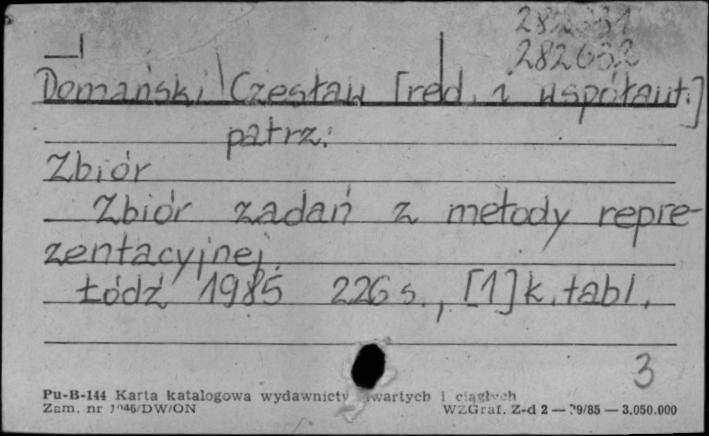 282631
282632
Domański Czesław [red. i współaut.]
patrz:
Zbiór
Zbiór zadań z metody repre-
zentacyjnej.
Łódź 1985 226 s., [1] k. tabl.
3
Pu-B-144 Karta katalogowa wydawnictw zwartych i ciągłych
Zam. nr /DW/ON WZGraf. Z-d 2 — 9/85 — 3.050.000